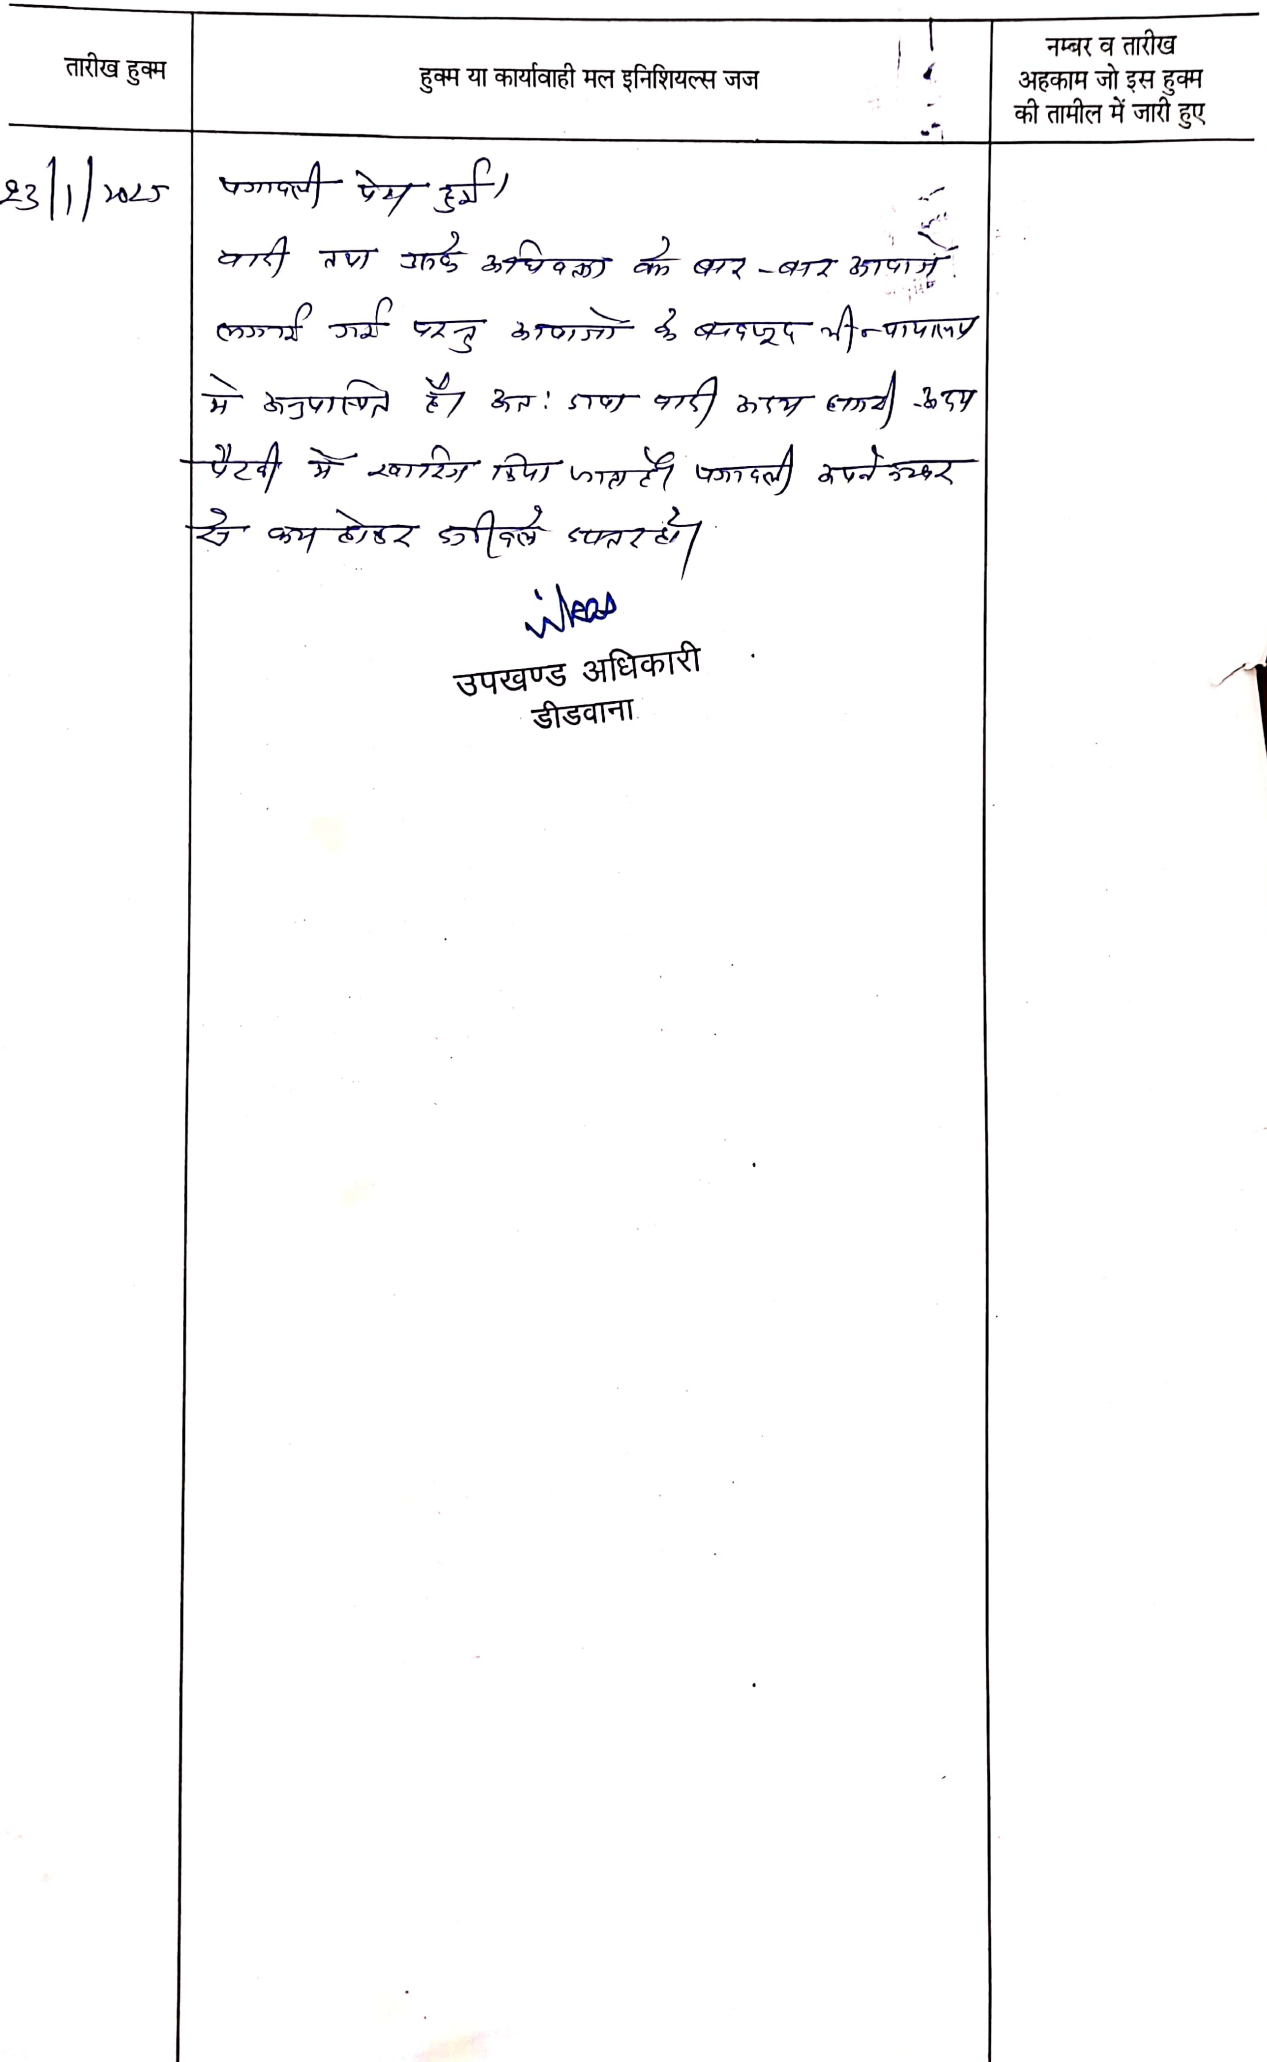 तारीख हुक्म
हुक्म या कार्यावाही मल इनिशियल्स जज
नम्बर व तारीख
अहकाम जो इस हुक्म
की तामील में जारी हुए
23/1/2025
पत्रावली पेश हुई।
वादी तथा उनके अधिवक्ता को बार-बार आवाजें
लगाई गई परन्तु आवाजों के बावजूद भी न्यायालय
में अनुपस्थित है। अतः दावा वादी अदम हाजरी अदम
पैरवी में खारिज किया जाता है। पत्रावली अपने नम्बर
से कम होकर दाखिल दफ्तर हो।
उपखण्ड अधिकारी
डीडवाना